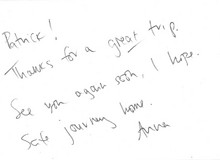 Patrick!
Thanks for a great trip.
See you again soon, I hope.
Safe journey home.
Anna